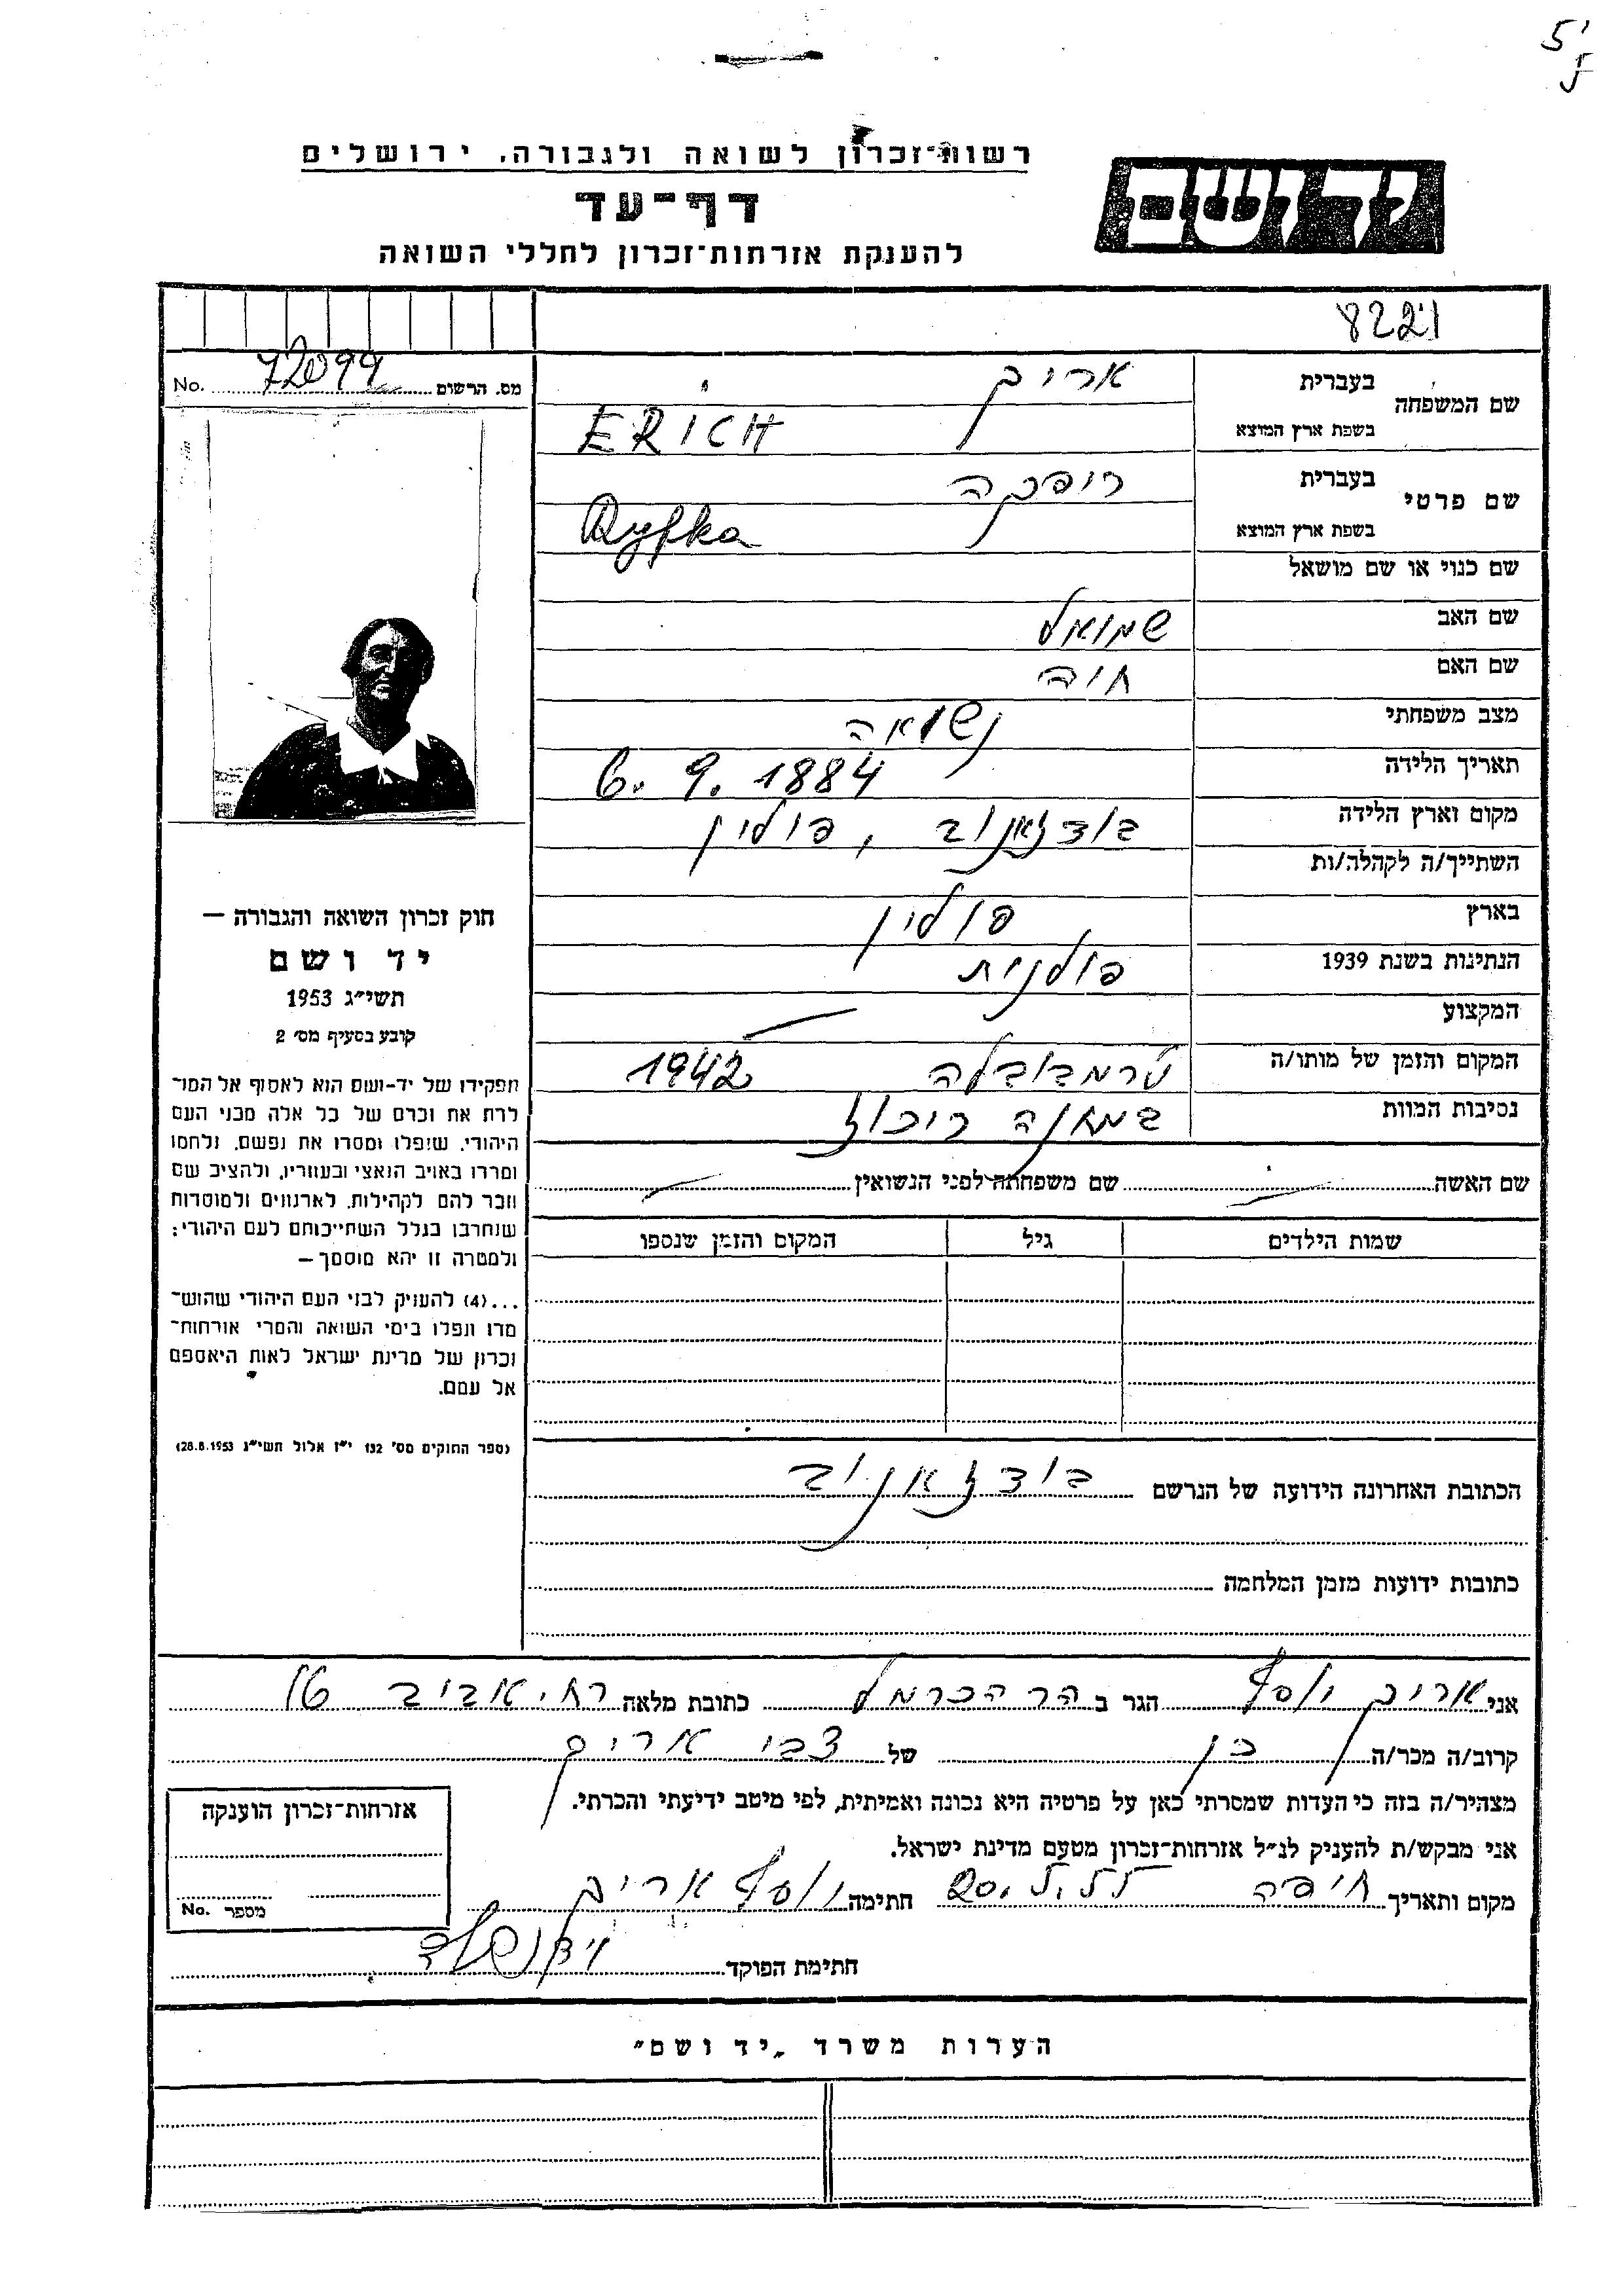 רשות־זכרון לשואה ולגבורה, ירושלים
יד ושם
דף־עד
להענקת אזרחות־זכרון לחללי השואה
8221
מס. הרשום 72099 No.
שם המשפחה
בעברית אריך
בשפת ארץ המוצא ERICH
שם פרטי
בעברית ריפקה
בשפת ארץ המוצא Ryfka
שם כנוי או שם מושאל
שם האב שמואל
שם האם חוה
מצב משפחתי נשואה
תאריך הלידה 6. 9. 1884
מקום וארץ הלידה בודזאנוב, פולין
השתייך/ה לקהלה/ות
בארץ פולין
הנתינות בשנת 1939 פולנית
המקצוע —
המקום והזמן של מותו/ה 1942
נסיבות המוות במחנה ריכוז
שם האשה — שם משפחתה לפני הנשואין —
שמות הילדים גיל המקום והזמן שנספו
הכתובת האחרונה הידועה של הנרשם בודזאנוב
כתובות ידועות מזמן המלחמה
חוק זכרון השואה והגבורה —
יד ושם
תשי״ג 1953
קובע בסעיף מס׳ 2
תפקידו של יד-ושם הוא לאסוף אל המו־
לדת את זכרם של כל אלה מבני העם
היהודי, שנפלו ומסרו את נפשם, נלחמו
ומרדו באויב הנאצי ובעוזריו, ולהציב שם
וזכר להם לקהילות, לארגונים ולמוסדות
שנחרבו בגלל השתייכותם לעם היהודי;
ולמטרה זו יהא מוסמך —
...(4) להעניק לבני העם היהודי שהוש־
מדו ונפלו בימי השואה והמרי אזרחות־
זכרון של מדינת ישראל לאות היאספם
אל עמם.
(ספר החוקים מס׳ 132 י״ז אלול תשי״ג 28.8.1953)
אני אריך יוסף הגר ב הר הכרמל כתובת מלאה רח׳ אביב
קרוב/ה מכר/ה בן של צבי אריך
מצהיר/ה בזה כי העדות שמסרתי כאן על פרטיה היא נכונה ואמיתית, לפי מיטב ידיעתי והכרתי.
אני מבקש/ת להעניק לנ״ל אזרחות־זכרון מטעם מדינת ישראל.
מקום ותאריך חיפה חתימה יוסף אריך
חתימת הפוקד
אזרחות־זכרון הוענקה
מספר No.
הערות משרד „יד ושם״